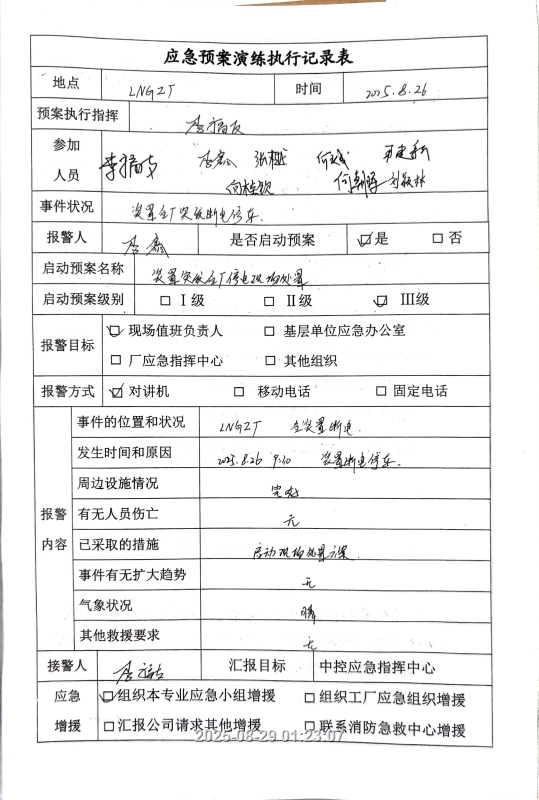 应急预案演练执行记录表
地点 LNG2T 时间 2025.8.26
预案执行指挥
参加人员 李鑫
事件状况 装置全厂突发断电停车.
报警人 李鑫 是否启动预案 ☑是 □否
启动预案名称 装置突发全厂停电现场处置
启动预案级别 □Ⅰ级 □Ⅱ级 ☑Ⅲ级
报警目标 ☑现场值班负责人 □基层单位应急办公室
□厂应急指挥中心 □其他组织
报警方式 ☑对讲机 □移动电话 □固定电话
报警内容
事件的位置和状况 LNG2T 全装置断电.
发生时间和原因 2025.8.26 9:10 装置断电停车.
周边设施情况 完好
有无人员伤亡 无
已采取的措施 启动现场处置方案.
事件有无扩大趋势 无
气象状况 晴
其他救援要求 无
接警人 汇报目标 中控应急指挥中心
应急增援 ☑组织本专业应急小组增援 □组织工厂应急组织增援
□汇报公司请求其他增援 □联系消防急救中心增援
2025-08-29 01:23:07